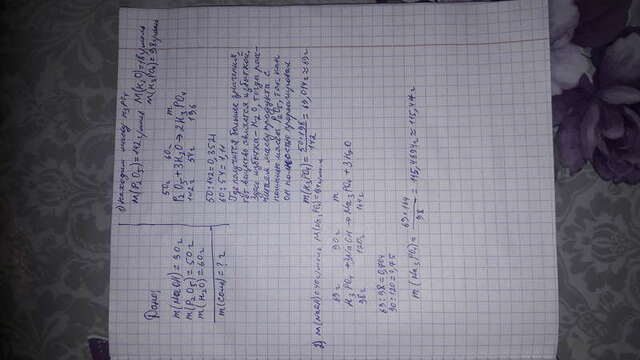 1) Находим массу H3PO4
M(P2O5)=142г/моль M(H2O)=18г/моль
M(H3PO4)=98г/моль
Дано:
m(NaOH)=90г
m(P2O5)=50г
m(H2O)=60г
m(соль)=? г
50г 60г m
P2O5+3H2O→2H3PO4
142г 54г 196
50:142=0,3521
60:54=1,11
Где получится больше значения,
тот вещество является избыткой.
Здесь избытка-H2O, тогда рас-
считаем массу продукта с
помощью массы P2O5, так как
он полностью прореагировал
m(H3PO4)=50*196/142=69,014г≈69г
2) M(NaOH)=40г/моль M(Na3PO4)=164г/моль
69г 90г m
H3PO4+3NaOH→Na3PO4+3H2O
98г 120г 164г
69:98=0,704
90:120=0,75
m(Na3PO4)=69*164/98=115,4694г≈115,47г